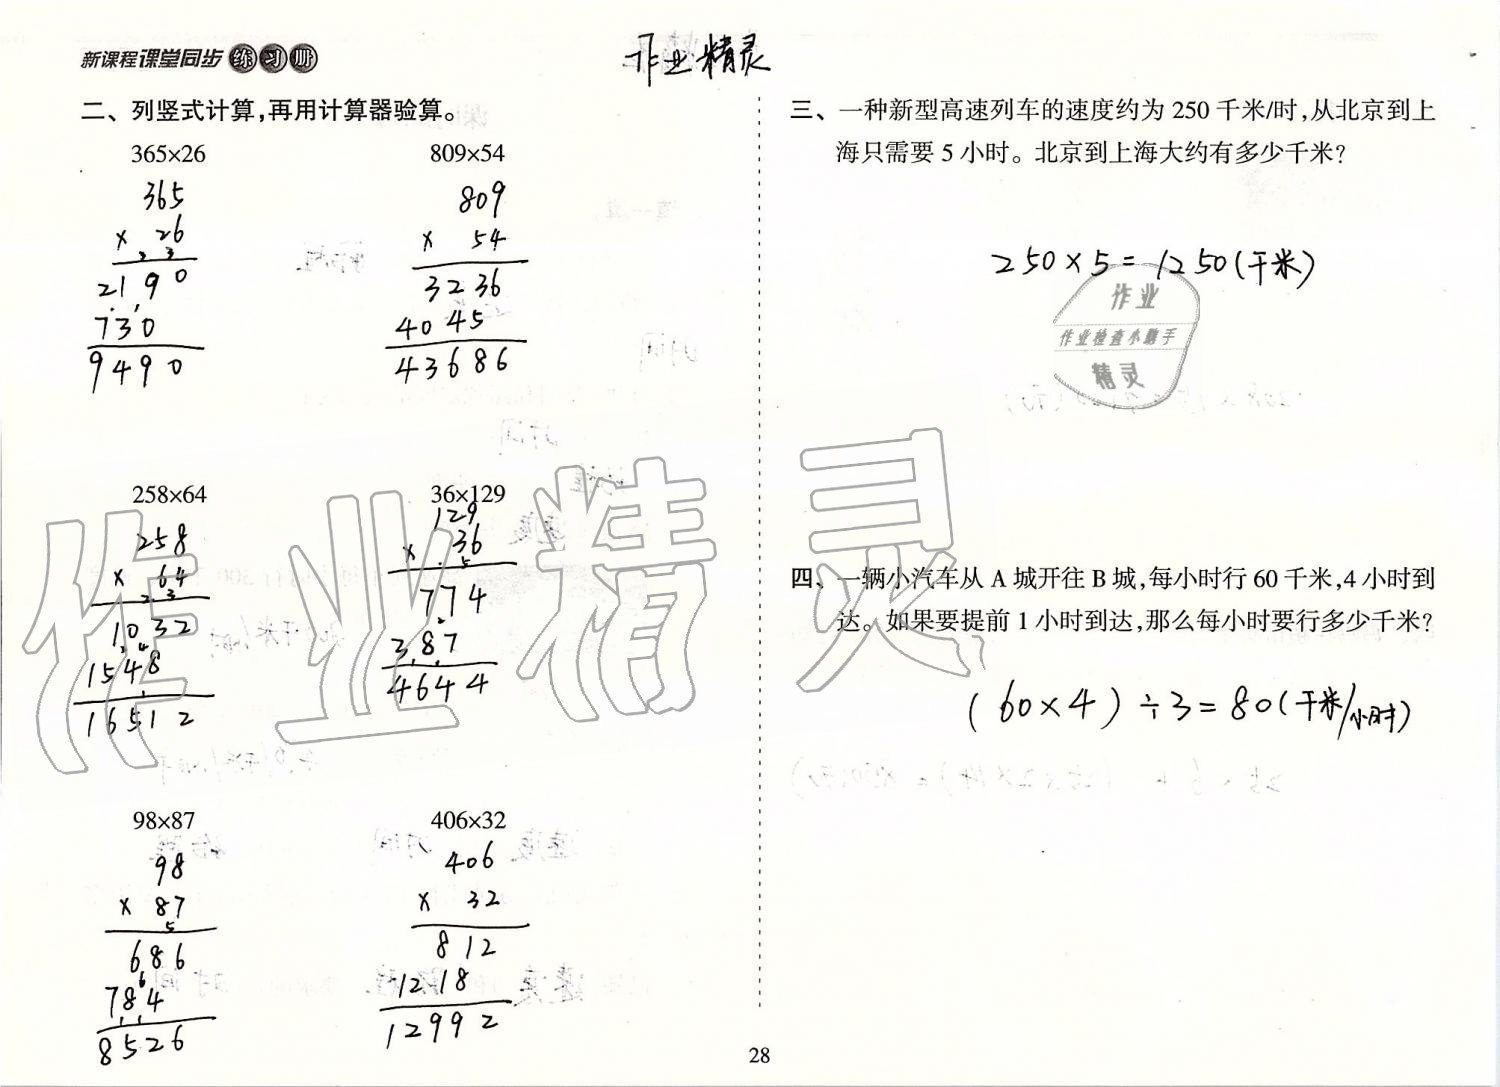 新课程课堂同步练习册
作业精灵
二、列竖式计算,再用计算器验算。
365×26
809×54
365
× 26
2 3
2190
730
9490
809
× 54
3236
4045
43686
258×64
36×129
258
× 64
2 3
1032
1548
16512
129
× 36
5
774
387
4644
98×87
406×32
98
× 87
5
686
784
8526
406
× 32
812
1218
12992
三、一种新型高速列车的速度约为 250 千米/时,从北京到上
海只需要 5 小时。北京到上海大约有多少千米?
250×5=1250(千米)
作业
作业检查小助手
精灵
四、一辆小汽车从 A 城开往 B 城,每小时行 60 千米,4 小时到
达。如果要提前 1 小时到达,那么每小时要行多少千米?
(60×4)÷3=80(千米/小时)
作业精灵
28